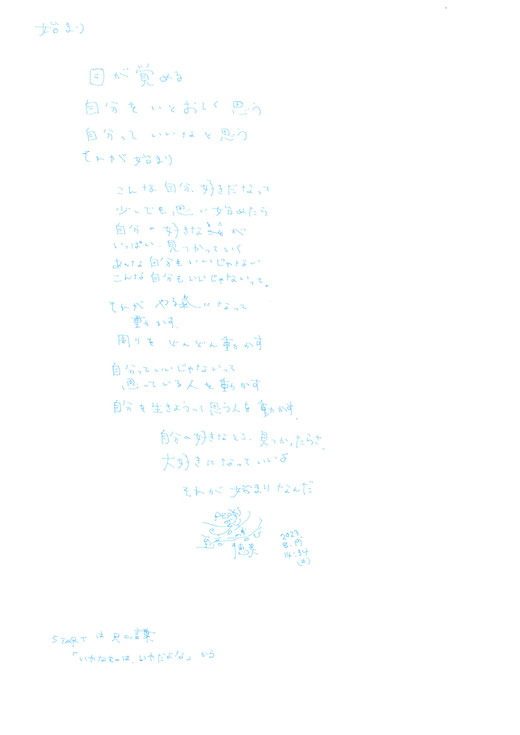 始まり
目が覚める
自分をいとおしく思う
自分っていいなと思う
それが始まり
こんな自分、好きだなって
少しでも、思い始めたら
自分の好きな が
いっぱい 見つかっていく
あんな自分もいいじゃない
こんな自分もいいじゃないって。
それが になって
動かす、
周りを どんどん動かす
自分っていいじゃないって
思っている人を動かす
自分を生きようって思う人を動かす
自分の好きなところ 見つかったらさ、
大好きになっていいよ
それが 始まりなんだ
2023
14:34
STARTは 言葉
「いやなものは、いやだよな」から